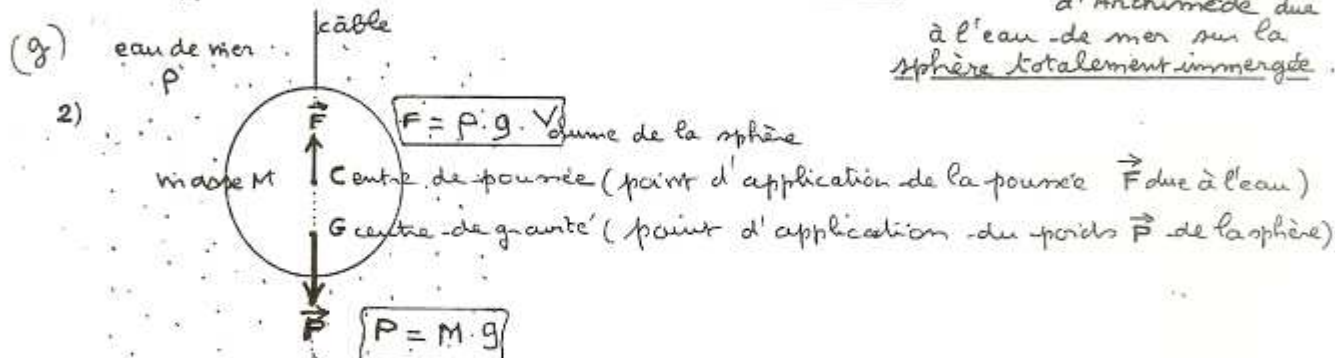 d'Archimède due
à l'eau de mer sur la
sphère totalement immergée.
câble
(g) eau de mer
ρ
2)
F
F = ρ.g.Volume de la sphère
masse M
Centre de poussée (point d'application de la poussée F due à l'eau)
G centre de gravité (point d'application du poids P de la sphère)
P
P = M.g